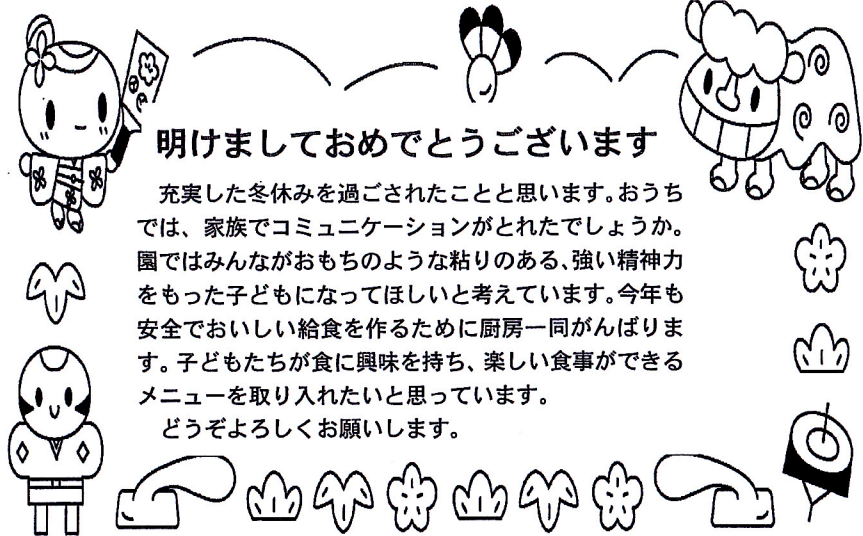 明けましておめでとうございます
充実した冬休みを過ごされたことと思います。おうち
では、家族でコミュニケーションがとれたでしょうか。
園ではみんながおもちのような粘りのある、強い精神力
をもった子どもになってほしいと考えています。今年も
安全でおいしい給食を作るために厨房一同がんばりま
す。子どもたちが食に興味を持ち、楽しい食事ができる
メニューを取り入れたいと思っています。
どうぞよろしくお願いします。